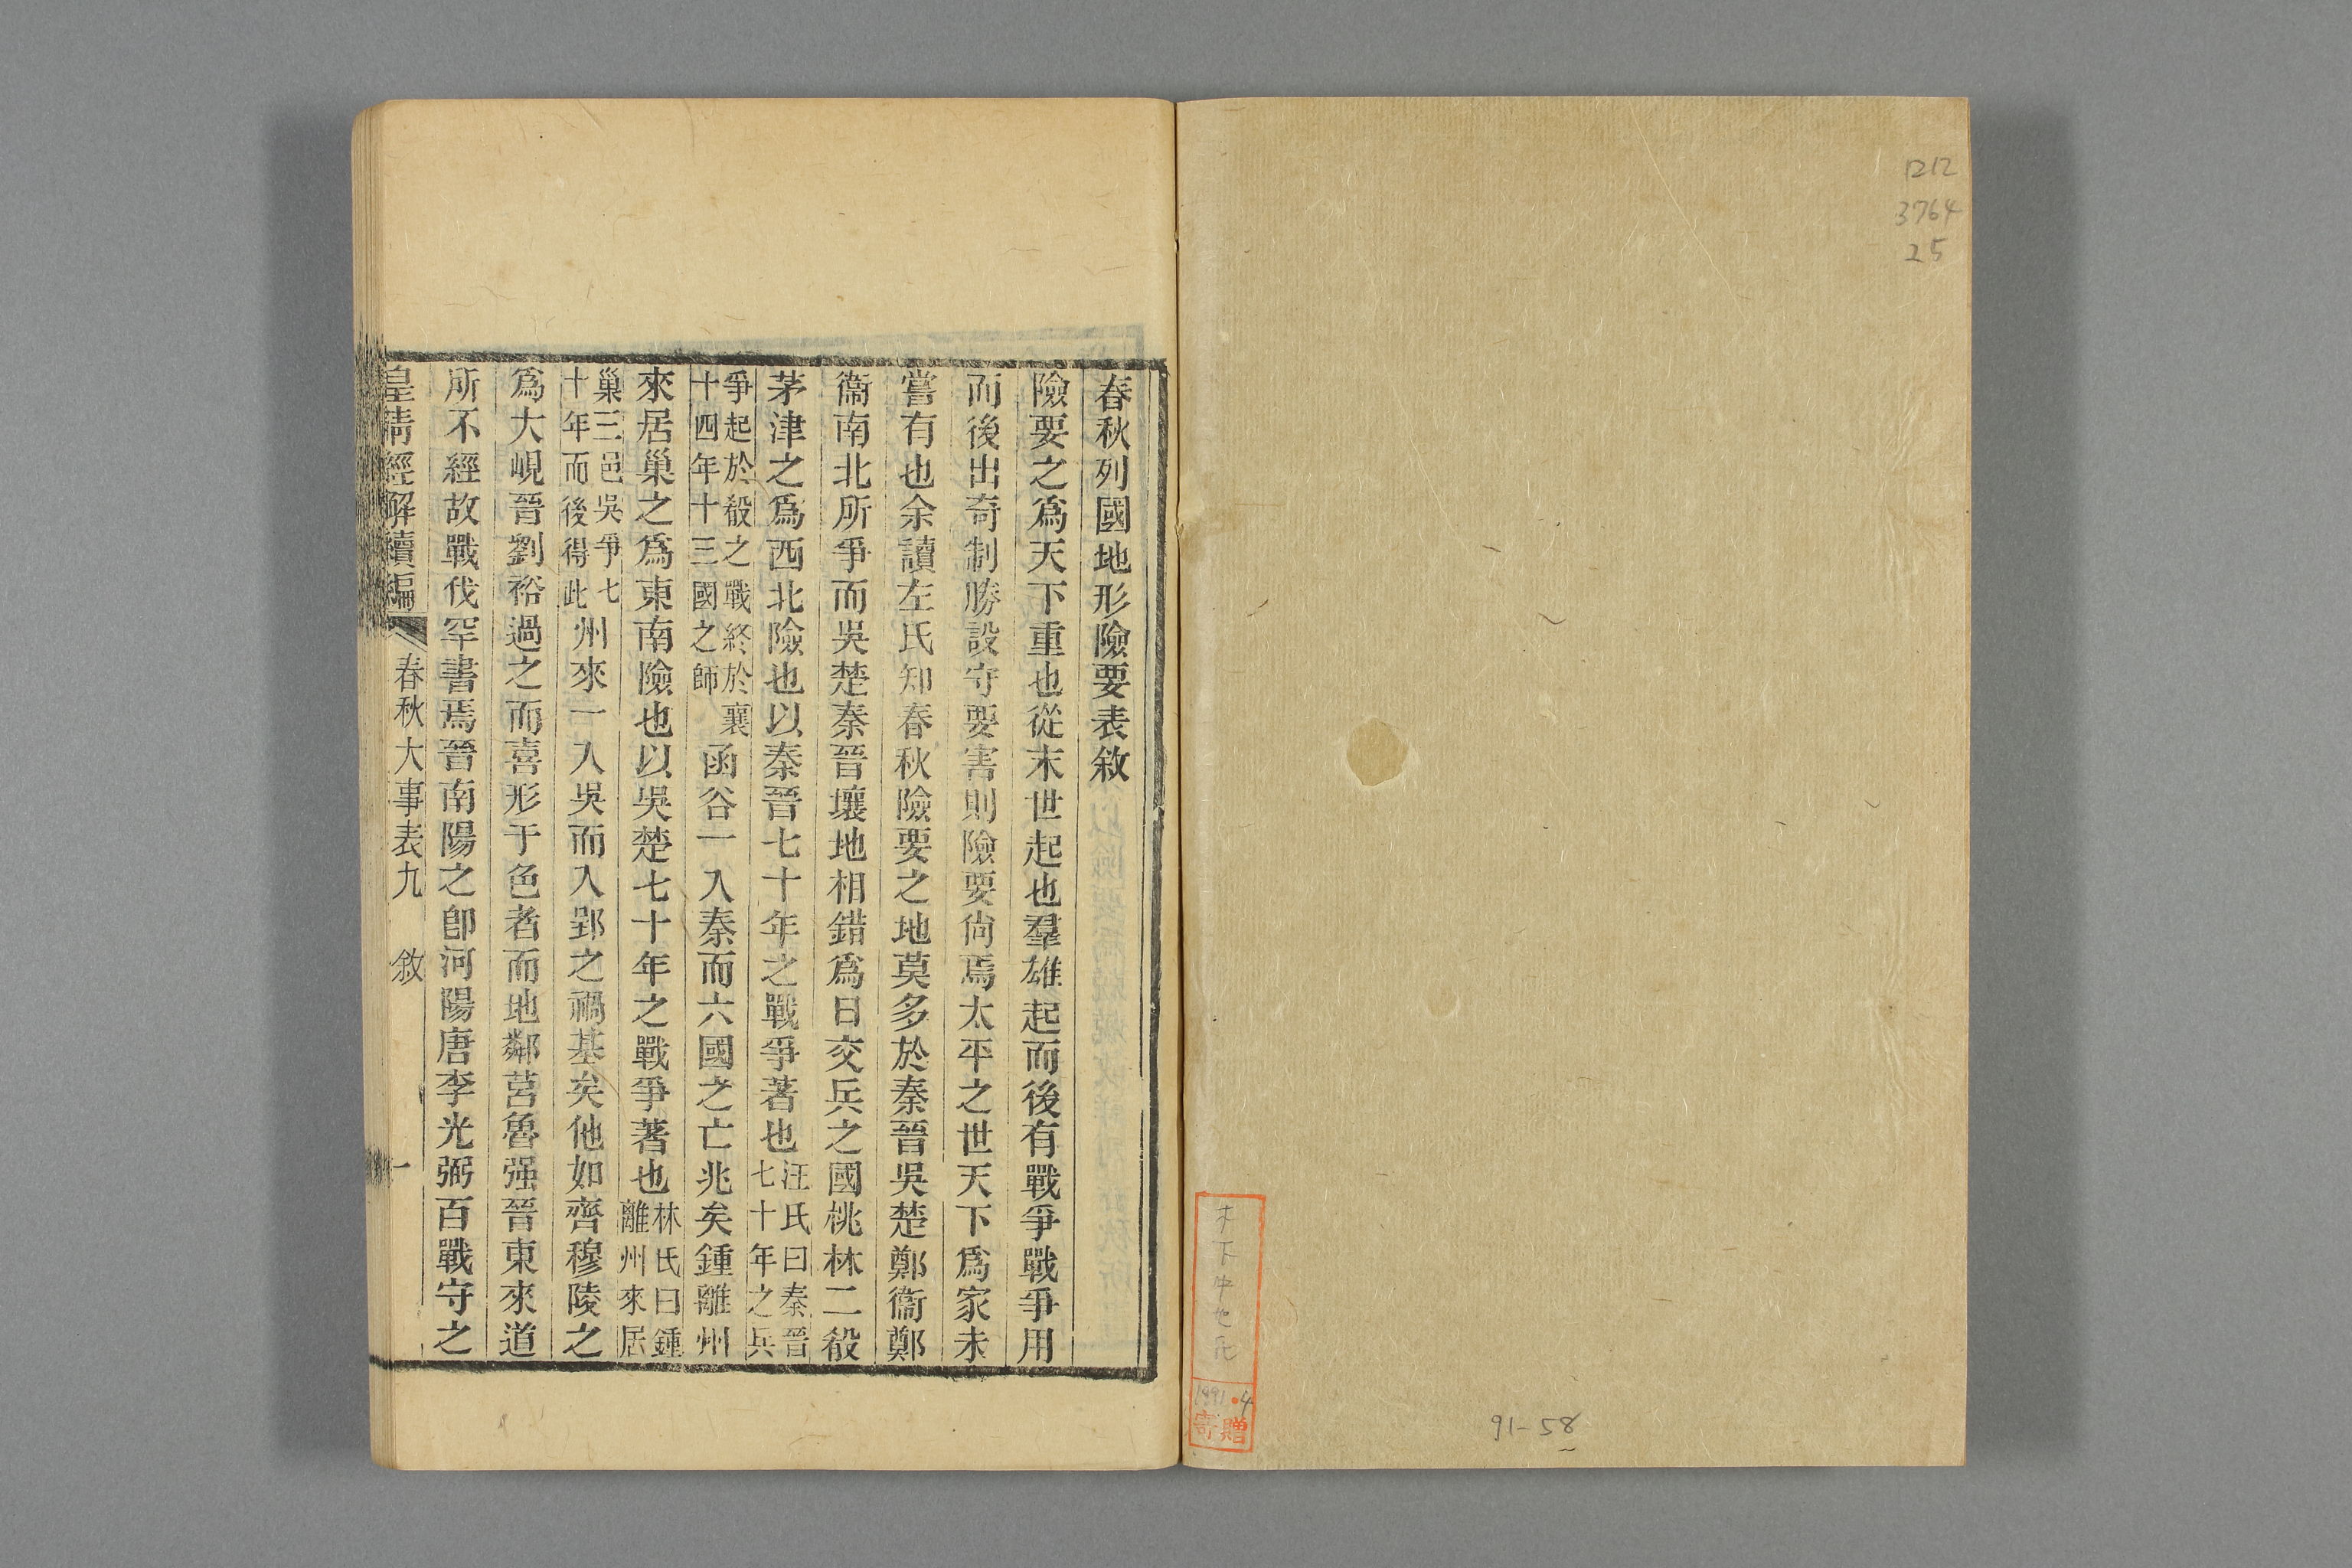 1212
3764
25
寄贈
91-58
春秋列國地形險要表敘
險要之爲天下重也從末世起也羣雄起而後有戰爭戰爭用
而後出奇制勝設守要害則險要尙焉太平之世天下爲家未
嘗有也余讀左氏知春秋險要之地莫多於秦晉吳楚鄭衞鄭
衞南北所爭而吳楚秦晉壤地相錯爲日交兵之國桃林二殽
茅津之爲西北險也以秦晉七十年之戰爭著也汪氏曰秦晉七十年之兵
爭起於殽之戰終於襄十四年十三國之師函谷一入秦而六國之亡兆矣鍾離州
來居巢之爲東南險也以吳楚七十年之戰爭著也林氏曰鍾離州來居
巢三邑吳爭七十年而後得此州來一入吳而入郢之禍基矣他如齊穆陵之
爲大峴晉劉裕過之而喜形于色者而地鄰莒魯强晉東來道
所不經故戰伐罕書焉晉南陽之卽河陽唐李光弼百戰守之
皇淸經解續編 春秋大事表九 敘 一